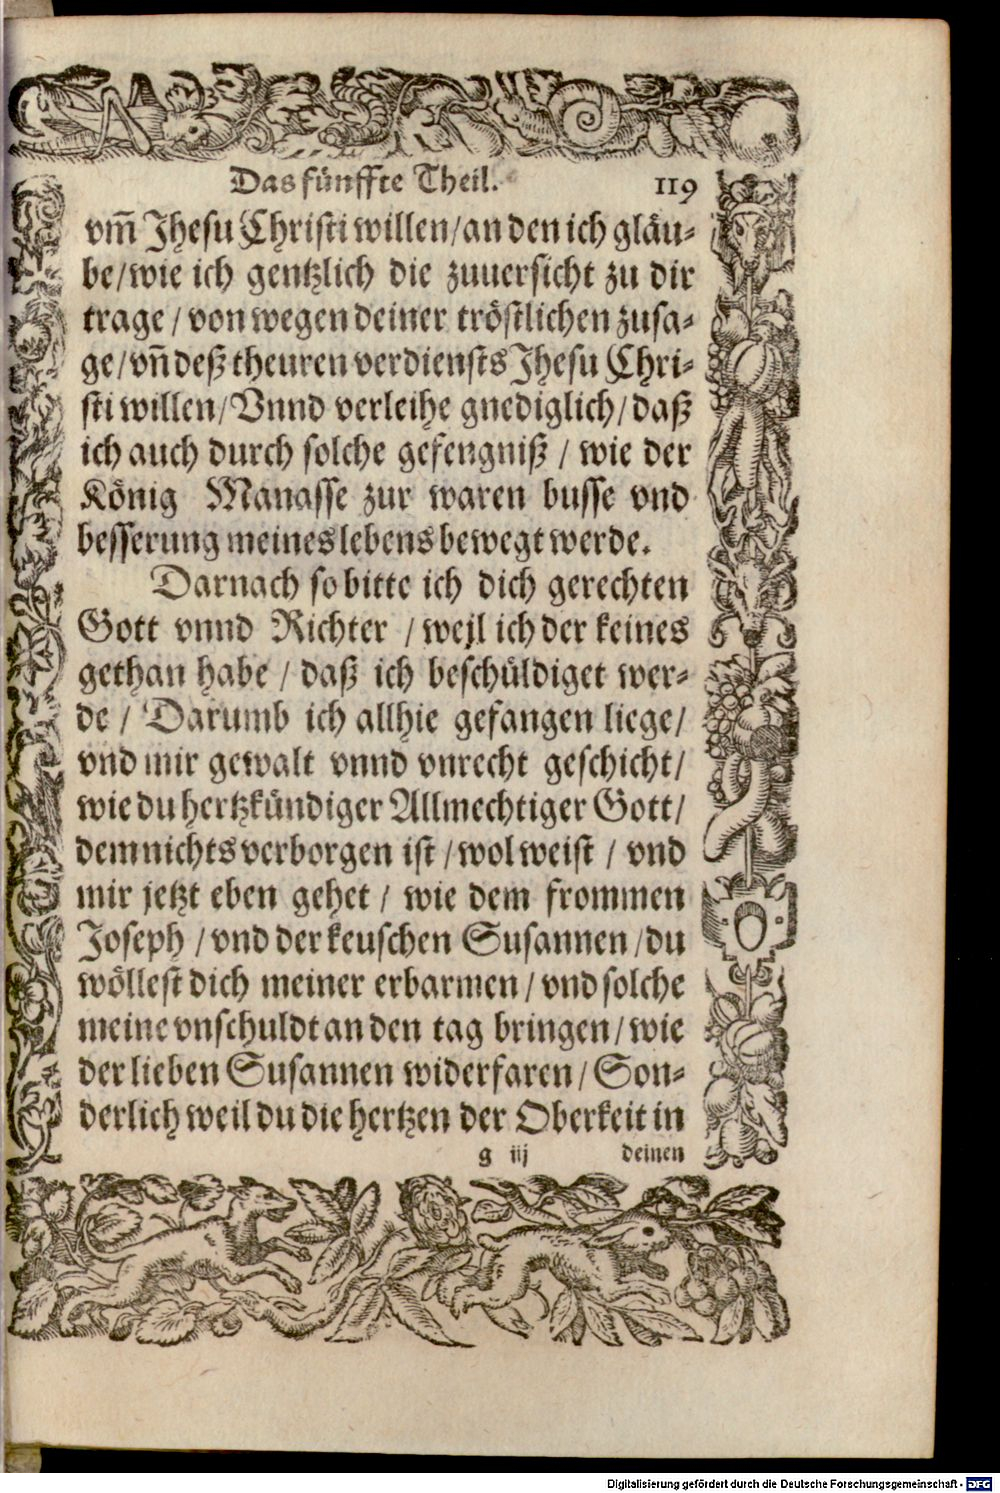 Das fünffte Theil. 119
vm̃ Jhesu Christi willen/an den ich gläu-
be/wie ich gentzlich die zuuersicht zu dir
trage / von wegen deiner tröstlichen zusa-
ge/vñ deß theuren verdiensts Jhesu Chri-
sti willen/Vnnd verleihe gnediglich/daß
ich auch durch solche gefengniß / wie der
König Manasse zur waren busse vnd
besserung meines lebens bewegt werde.
Darnach so bitte ich dich gerechten
Gott vnnd Richter / weil ich der keines
gethan habe / daß ich beschüldiget wer-
de / Darumb ich allhie gefangen liege/
vnd mir gewalt vnnd vnrecht geschicht/
wie du hertzkündiger Allmechtiger Gott/
dem nichts verborgen ist / wol weist / vnd
mir jetzt eben gehet / wie dem frommen
Joseph / vnd der keuschen Susannen /du
wöllest dich meiner erbarmen / vnd solche
meine vnschuldt an den tag bringen / wie
der lieben Susannen widerfaren / Son-
derlich weil du die hertzen der Oberkeit in
g iij deinen
Digitalisierung gefördert durch die Deutsche Forschungsgemeinschaft - DFG